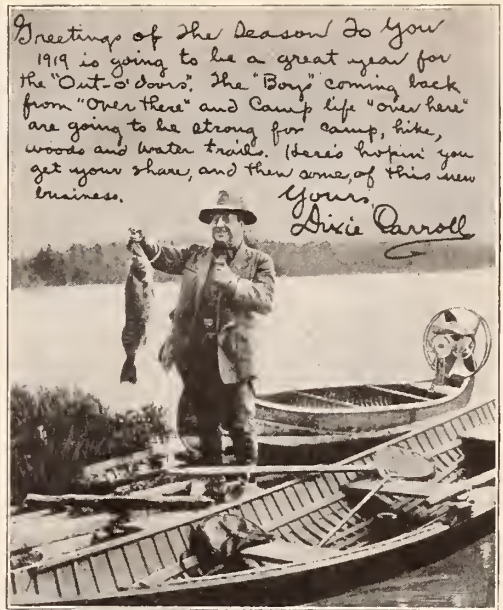 Greetings of The Season To You
1919 is going to be a great year for
the "Out-o'doors". The "Boys" coming back
from "over there" and Camp life "over here"
are going to be strong for camp, hike,
woods and water trails. Here's hopin' you
get your share, and then some, of this new
business.
Yours,
Dixie Carroll